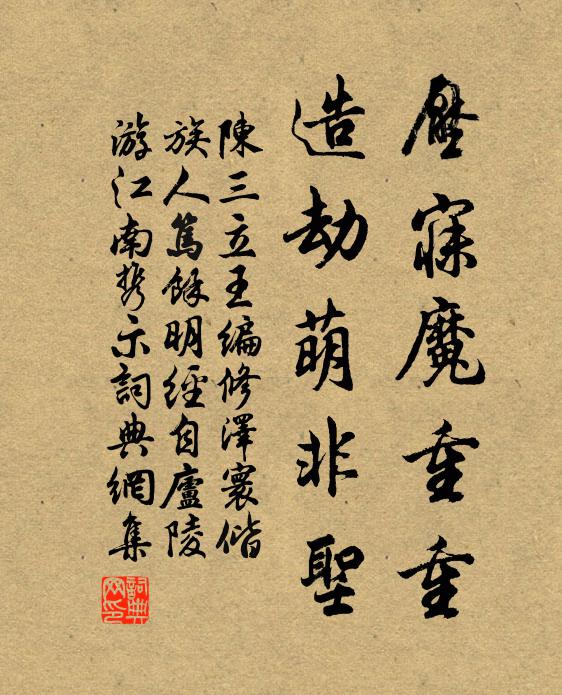 壓寐魔重重
造劫萌非聖
陳三立王編修澤寰偕
族人篤餘明經自廬陵
游江南携示詞典網集
詞典
网印